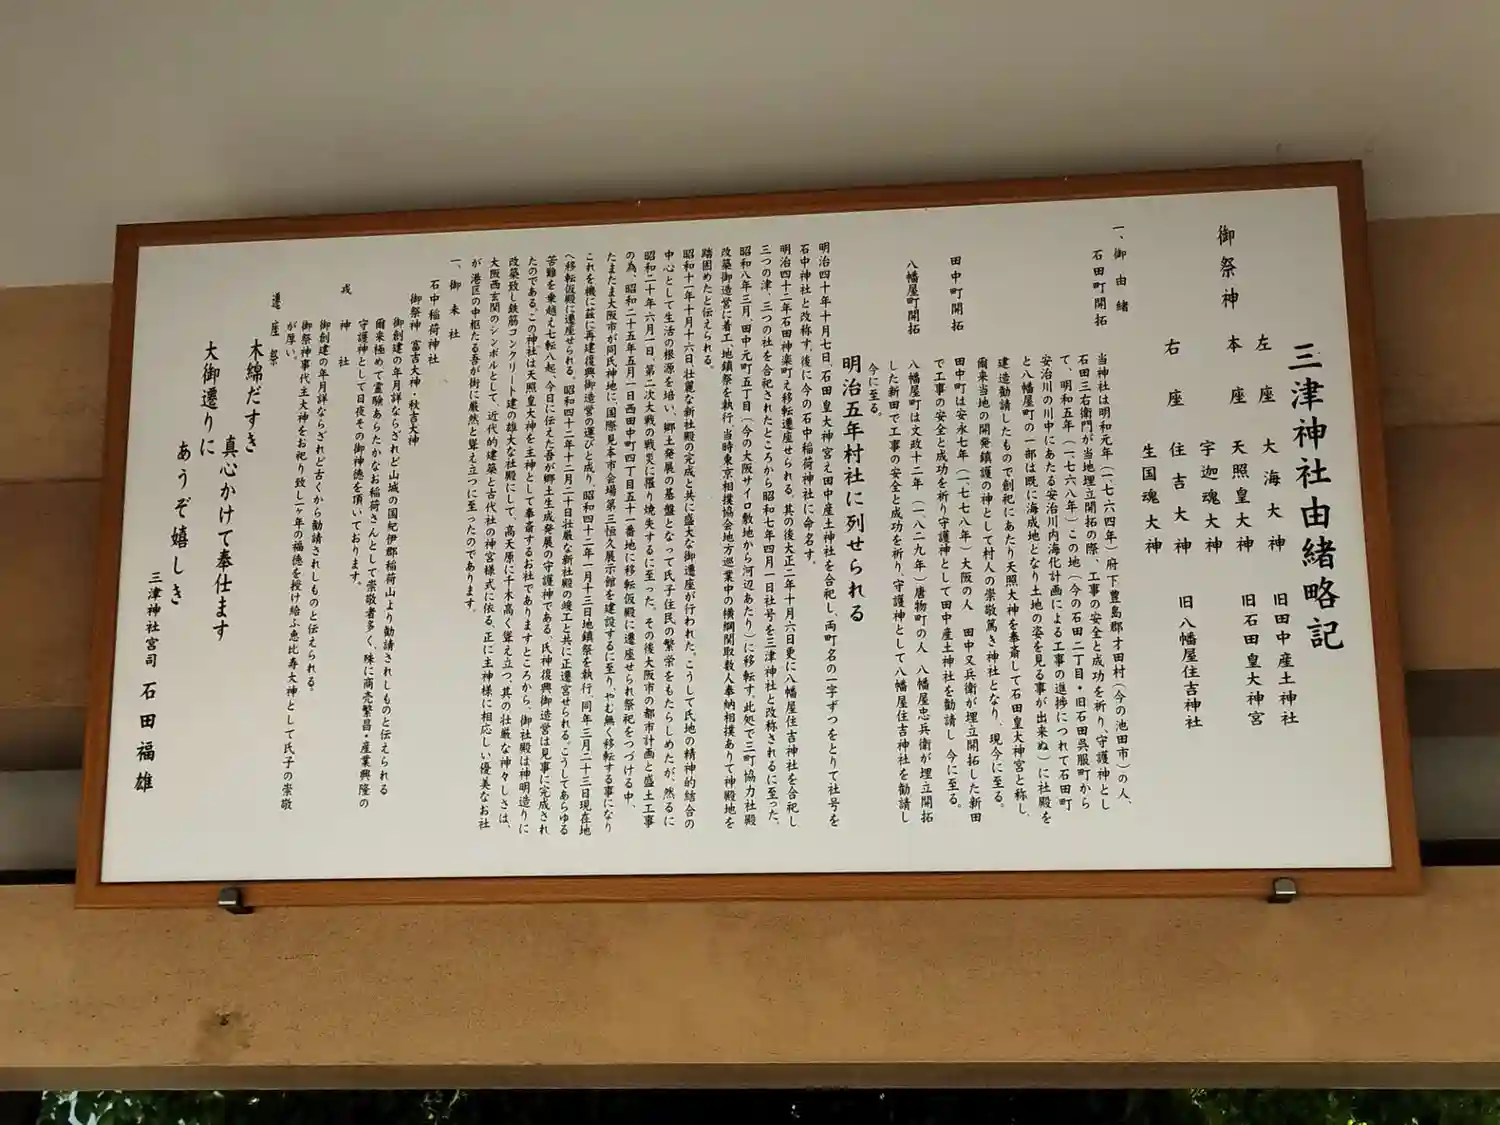 三津神社由緒略記
御祭神
左座 大海大神 旧田中産土神社
本座 天照皇大神 旧石田皇大神宮
宇迦魂大神
右座 住吉大神 旧八幡屋住吉神社
生国魂大神
一、御由緒
石田町開拓
当神社は明和元年(一七六四年)府下豊島郡才田村(今の池田市)の人、
石田三右衛門が当地埋立開拓の際、工事の安全と成功を祈り、守護神とし
て、明和五年(一七六八年)この地(今の石田二丁目・旧石田呉服町から
安治川の川中にあたる安治川内海化計画による工事の進捗につれて石田町
と八幡屋町の一部は既に海成地となり土地の姿を見る事が出来ぬ)に社殿を
建造勧請したもので創祀にあたり天照大神を奉斎して石田皇大神宮と称し、
爾来当地の開発鎮護の神として村人の崇敬篤き神社となり、現今に至る。
田中町開拓
田中町は安永七年(一七七八年)大阪の人 田中又兵衛が埋立開拓した新田
で工事の安全と成功を祈り守護神として田中産土神社を勧請し 今に至る。
八幡屋町開拓
八幡屋町は文政十二年(一八二九年)唐物町の人 八幡屋忠兵衛が埋立開拓
した新田で工事の安全と成功を祈り、守護神として八幡屋住吉神社を勧請し
今に至る。
明治五年村社に列せられる
明治四十年十月七日、石田皇大神宮え田中産土神社を合祀し、両町名の一字ずつをとりて社号を
石中神社と改称す。後に今の石中稲荷神社に命名す。
明治四十二年石田神楽町え移転遷座せられる。其の後大正二年十月六日更に八幡屋住吉神社を合祀し
三つの津、三つの社を合祀されたところから昭和七年四月一日社号を三津神社と改称されるに至った。
昭和八年三月、田中元町五丁目(今の大阪サイロ敷地から河辺あたり)に移転す。此処で三町協力社殿
改築御造営に着工、地鎮祭を執行、当時東京相撲協会地方巡業中の横綱関取数人奉納相撲ありて神殿地を
踏固めたと伝えられる。
昭和十一年十月十六日、壮麗な新社殿の完成と共に盛大な御遷座が行われた。こうして氏地の精神的結合の
中心として生活の根源を培い、郷土発展の基盤となって氏子住民の繁栄をもたらしめたが、然るに
昭和二十年六月一日、第二次大戦の戦災に罹り焼失するに至った。その後大阪市の都市計画と盛土工事
の為、昭和二十五年五月一日西田中町四丁目五十一番地に移転仮殿に遷座せられ祭祀をつづける中、
たまたま大阪市が同氏神地に、国際見本市会場第三恒久展示館を建設するに至り、やむ無く移転する事になり
これを機に茲に再建復興御造営の運びと成り、昭和四十二年一月十三日地鎮祭を執行、同年三月二十三日現在地
へ移転仮殿に遷座せられる。昭和四十二年十二月二十日壮厳な新社殿の竣工と共に正遷宮せられる。こうしてあらゆる
苦難を乗越え七転八起、今日に伝えた吾が郷土生成発展の守護神である、氏神復興御造営は見事に完成され
たのである。この神社は天照皇大神を主神として奉斎するお社でありますところから、御社殿は神明造りに
改築致し鉄筋コンクリート建の雄大な社殿にして、高天原に千木高く聳え立つ、其の壮厳な神々しさは、
大阪西玄関のシンボルとして、近代的建築と古代社の神宮様式に依る、正に主神様に相応しい優美なお社
が港区の中枢たる吾が街に厳然と聳え立つに至ったのであります。
一、御末社
石中稲荷神社
御祭神 富吉大神・秋吉大神
御創建の年月詳ならざれど山城の国紀伊郡稲荷山より勧請されしものと伝えられる
爾来極めて霊験あらたかなお稲荷さんとして崇敬者多く、殊に商売繁昌・産業興隆の
守護神として日夜その御神徳を頂いております。
戎神社
御創建の年月詳ならざれど古くから勧請されしものと伝えられる。
御祭神事代主大神をお祀り致し一ヶ年の福徳を授け給ふ恵比寿大神として氏子の崇敬
が厚い。
遷座祭
木綿だすき
真心かけて奉仕ます
大御遷りに
あうぞ嬉しき
三津神社宮司 石田福雄